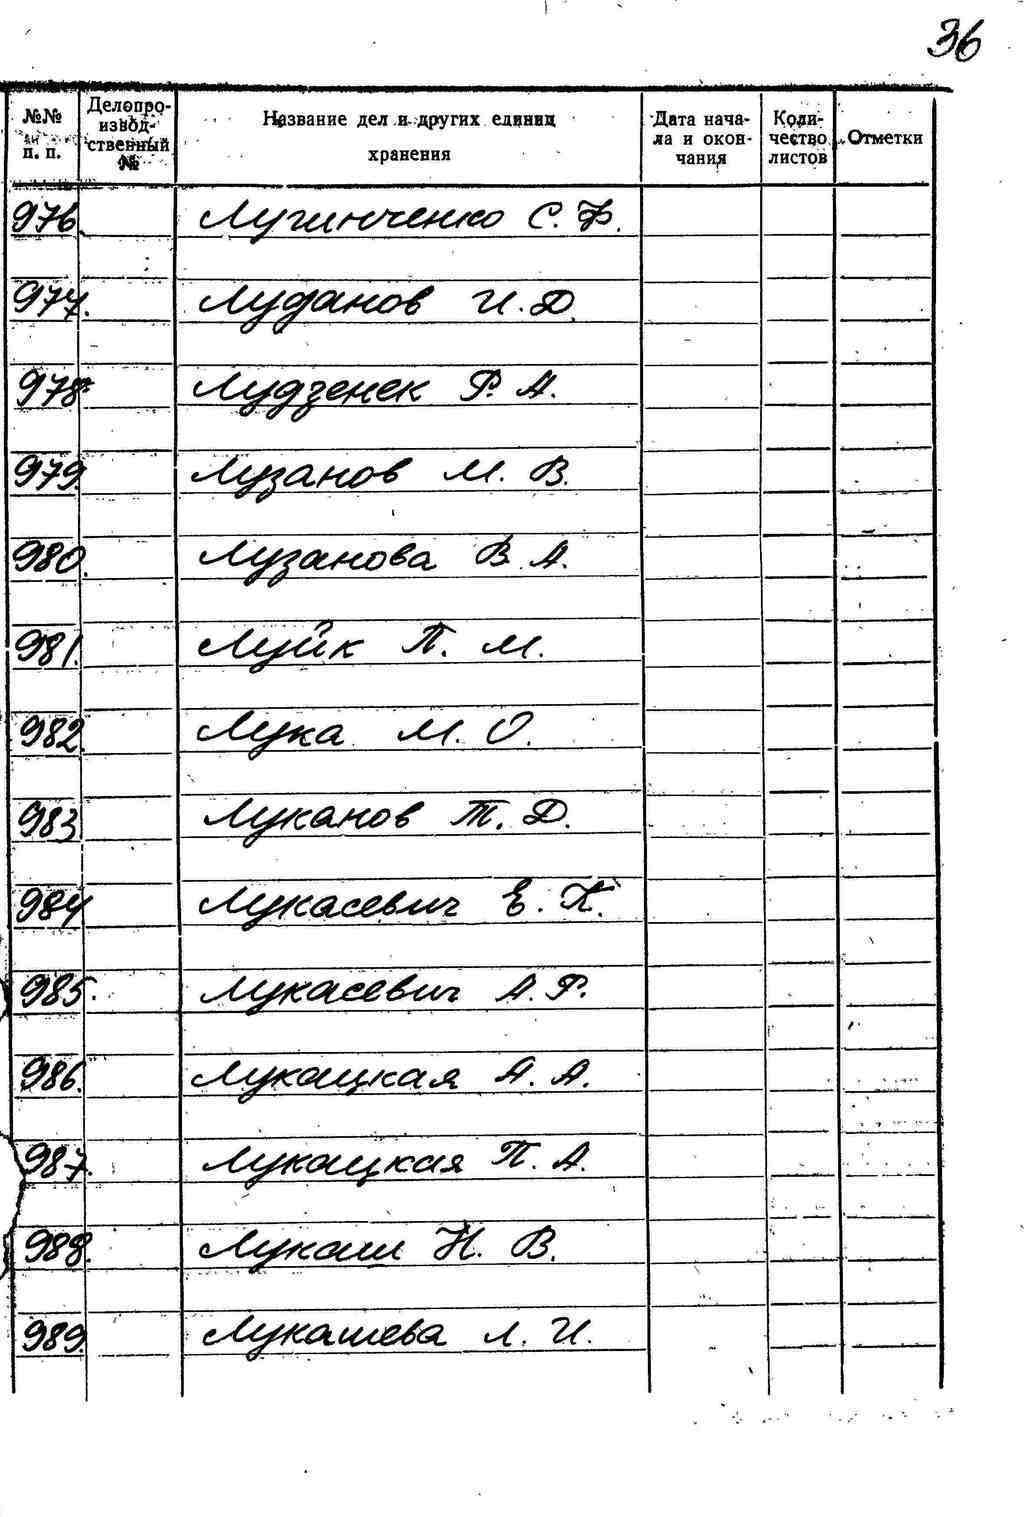 36
№№ п. п. Делопроизводственный № Название дел и других единиц хранения Дата начала и окончания Количество листов Отметки
976. Лугинченко С. Ф.
977. Луданов И. Д.
978. Лудзенек Р. А.
979. Лузанов М. В.
980. Лузанова В. А.
981. Луйк П. М.
982. Лука М. О.
983. Луканов Т. Д.
984 Лукасевич Е. К.
985. Лукасевич А. Р.
986. Лукацкая А. А.
987. Лукацкая П. А.
988. Лукаш Н. В.
989. Лукашева Л. И.